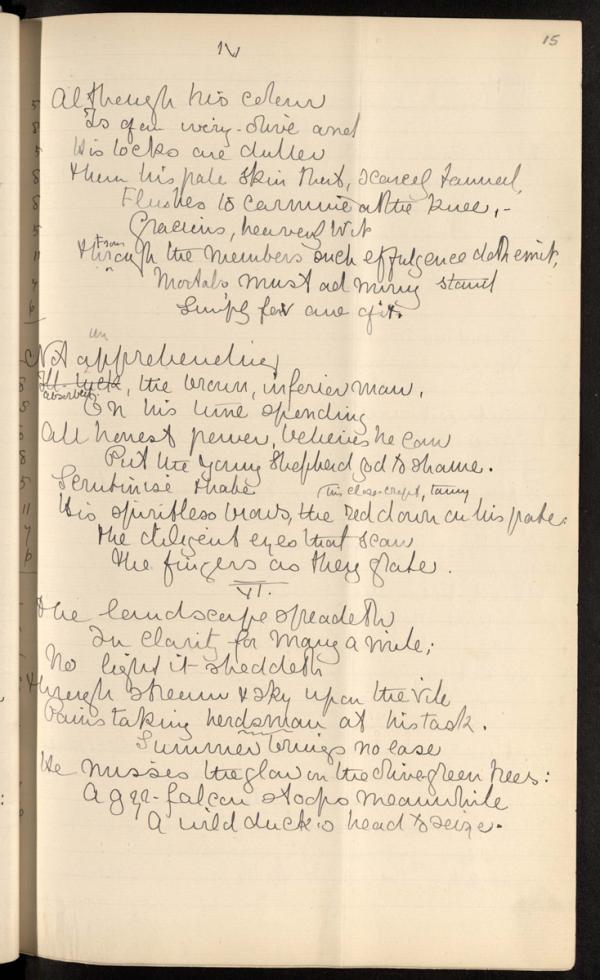 15
IV
Although his colour
Is of an ivory-olive and
His locks are duller
Than his pale skin that, scarcely tanned,
Flushes to carmine at the knee, -
Gracious, heavenly wit
From
Through the members such effulgence doth emit,
Mortals must admiring stand
Simply for awe of it.
un
Not apprehending
Ill-luck, the brown, inferior man,
absorbed
On his tune spending
All honest power, believes he can
Put the young shepherd god to shame.
Scrutinise
this close-cropt, tawny
His spiritless brows, the red down on his pate:
the diligent eyes that scan
The fingers as they grate.
VI.
The landscape spreadeth
In clarity for many a mile;
No light it sheddeth
Through stream & sky upon the vile
Painstaking herdsman at his task.
Summer brings no ease
He misses the glow on the olive green trees:
A gyr-falcon stoops meanwhile
A wild duck's head to seize.